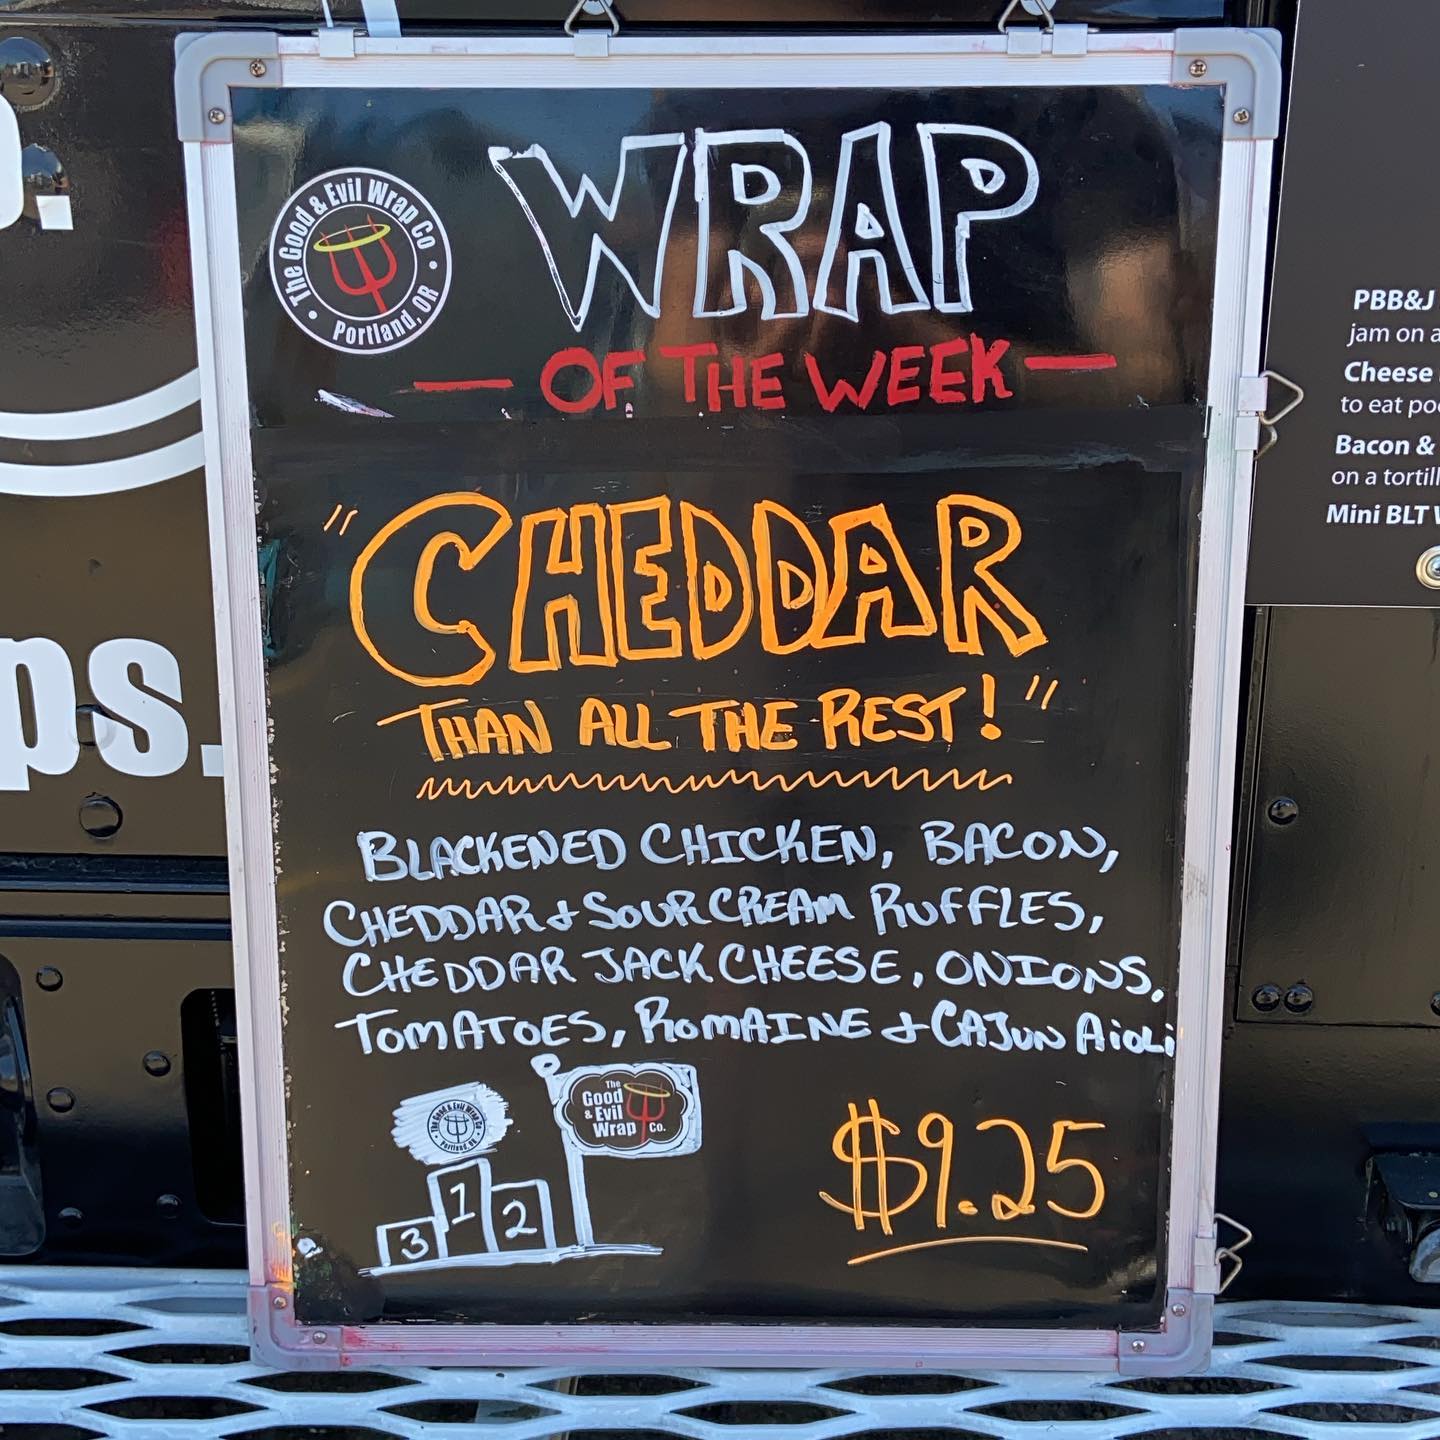 The Good & Evil Wrap Co
Portland, OR
WRAP
OF THE WEEK
"CHEDDAR
THAN ALL THE REST!"
BLACKENED CHICKEN, BACON,
CHEDDAR & SOUR CREAM RUFFLES,
CHEDDAR JACK CHEESE, ONIONS,
TOMATOES, ROMAINE & CAJUN AiOLi
The Good & Evil Wrap Co
Portland, OR
The
Good
& Evil
Wrap Co.
1
2
3
$9.25
ps.
PBB&J
jam on a
Cheese
to eat
Bacon &
on a
Mini BLT